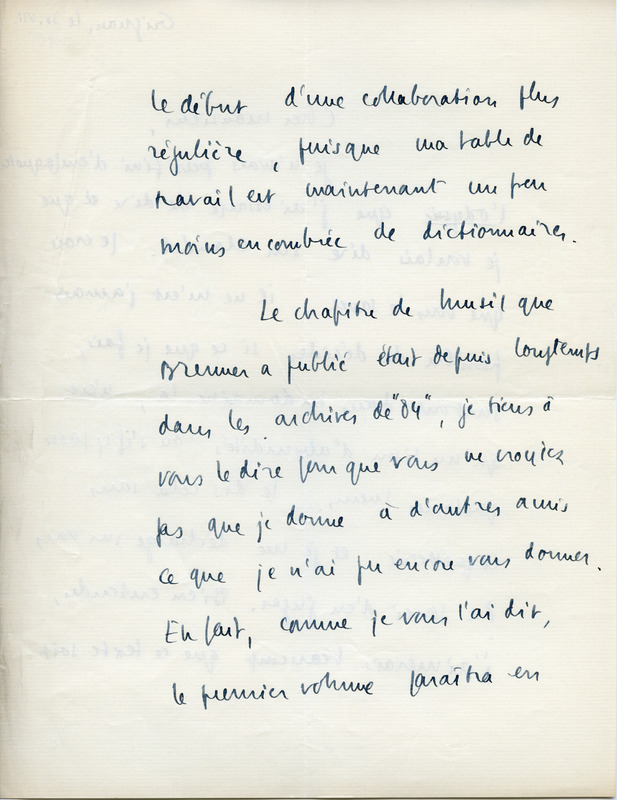 le début d'une collaboration plus
régulière, puisque ma table de
travail est maintenant un peu
moins encombrée de dictionnaires.
Le chapitre de Musil que
Brenner a publié était depuis longtemps
dans les archives de "84", je tiens à
vous le dire pour que vous ne croyiez
pas que je donne à d'autres amis
ce que je n'ai pu encore vous donner.
En fait, comme je vous l'ai dit,
le premier volume paraîtra en